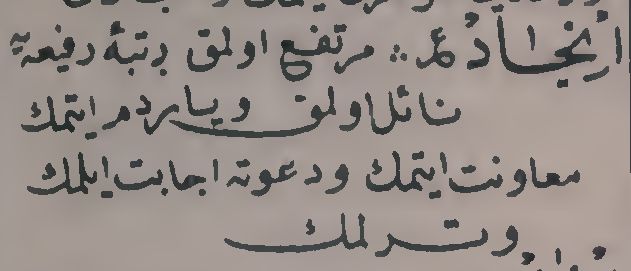 اِنْجَادْ عر ∴ مرتفع اولمق رتبۀ رفيعه يه
نائل اولمق ويارد م ايتمك
معاونت ايتمك ودعوته اجابت ايلمك
وترلمك